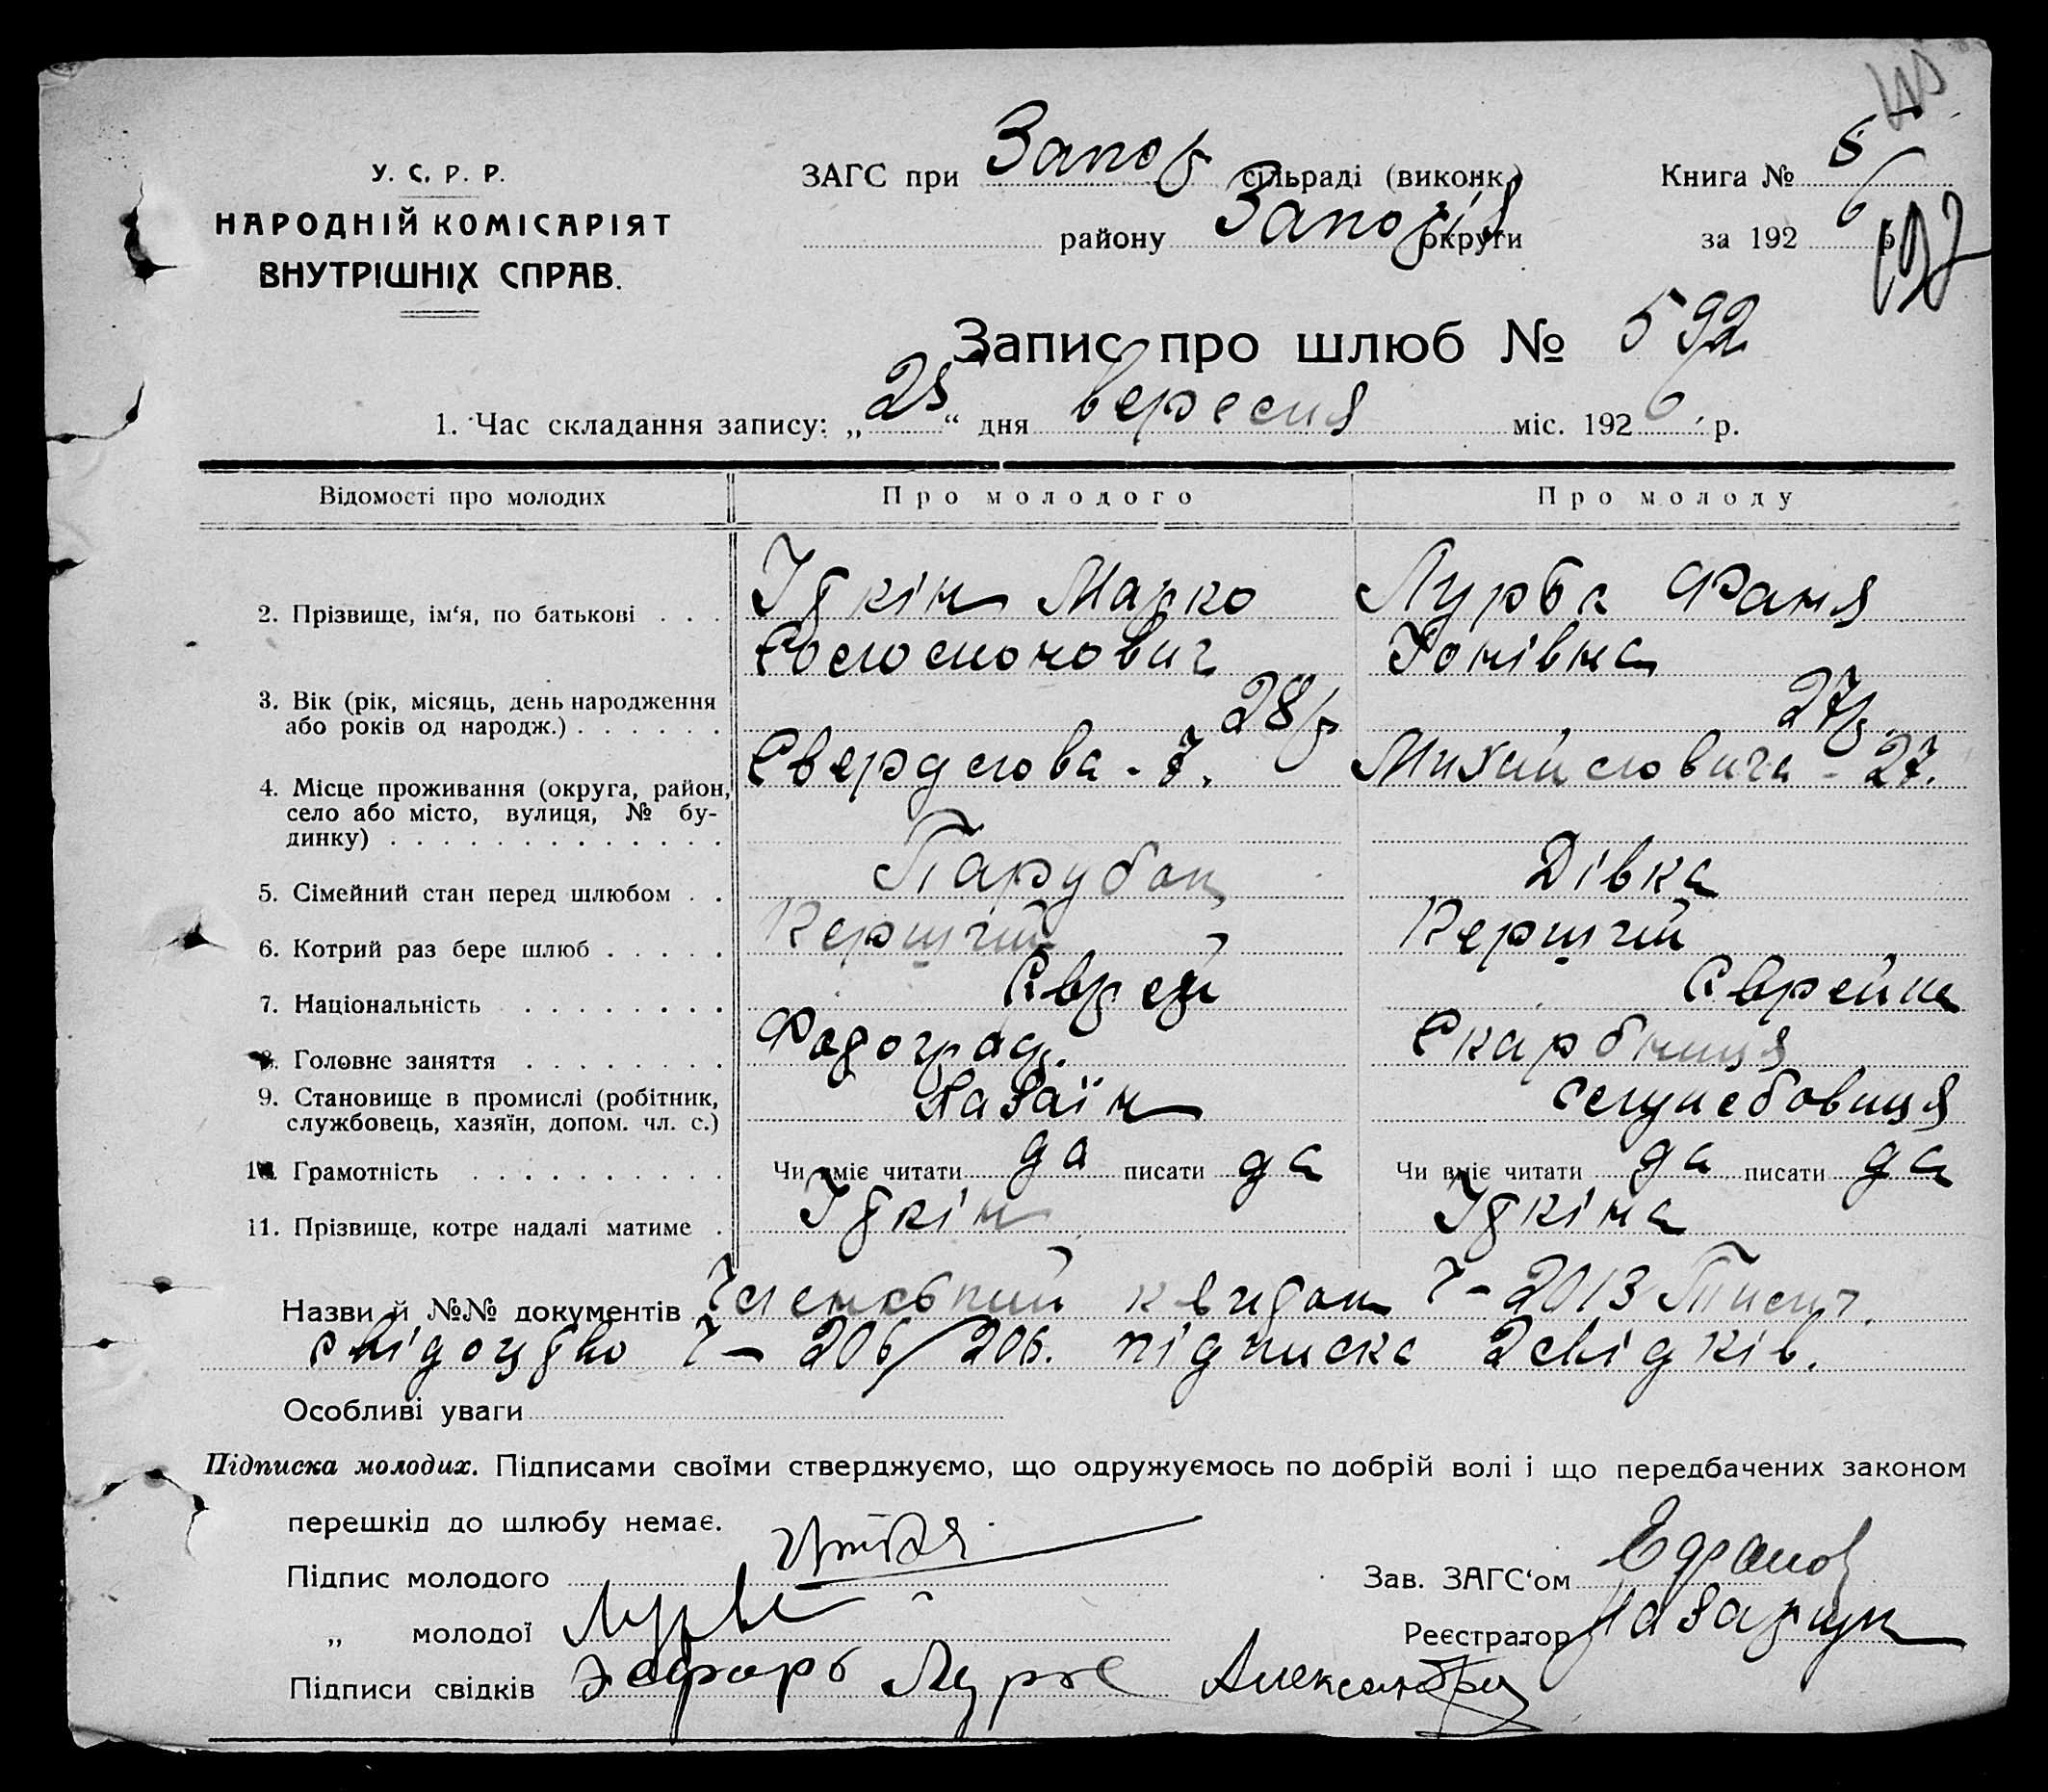 У. С. Р. Р.
НАРОДНІЙ КОМІСАРІЯТ
ВНУТРІШНІХ СПРАВ.
ЗАГС при Запор сільраді (виконк.) Книга № 5
району Запоріз округи за 1926 р.
197
Запис про шлюб № 592
1. Час складання запису: „25“ дня вересня міс. 1926 р.
Відомості про молодих Про молодого Про молоду
2. Прізвище, ім‘я, по батькові . . . Іткін Марко Лурье Фаня
Соломонович Йонівна
3. Вік (рік, місяць, день народження
або років од народж.) . . . . . . 28 р 27 р.
4. Місце проживання (округа, район,
село або місто, вулиця, № бу-
динку) . . . . . . . . . . . . . Свердлова - 7. Михайловича - 27.
5. Сімейний стан перед шлюбом . . Парубок Дівка
6. Котрий раз бере шлюб . . . . . Перший Перший
7. Національність . . . . . . . . Єврей Єврейка
8. Головне заняття . . . . . . . . Фотограф. Скарбниця
9. Становище в промислі (робітник,
службовець, хазяїн, допом. чл. с.) Хазаїн служебовиця
10. Грамотність . . . . . . . . . . Чи вміє читати да писати да Чи вміє читати да писати да
11. Прізвище, котре надалі матиме . Іткін Іткіна
Назви й №№ документів Членський квиток Ч - 2013 Писм.
свідоцтво Ч - 206/206. підписка 2 свідків.
Особливі уваги
Підписка молодих. Підписами своїми стверджуємо, що одружуємось по добрій волі і що передбачених законом
перешкід до шлюбу немає.
Підпис молодого Зав. ЗАГС‘ом
„ молодої Лурье Реєстратор Назарчук
Підписи свідків Лурье